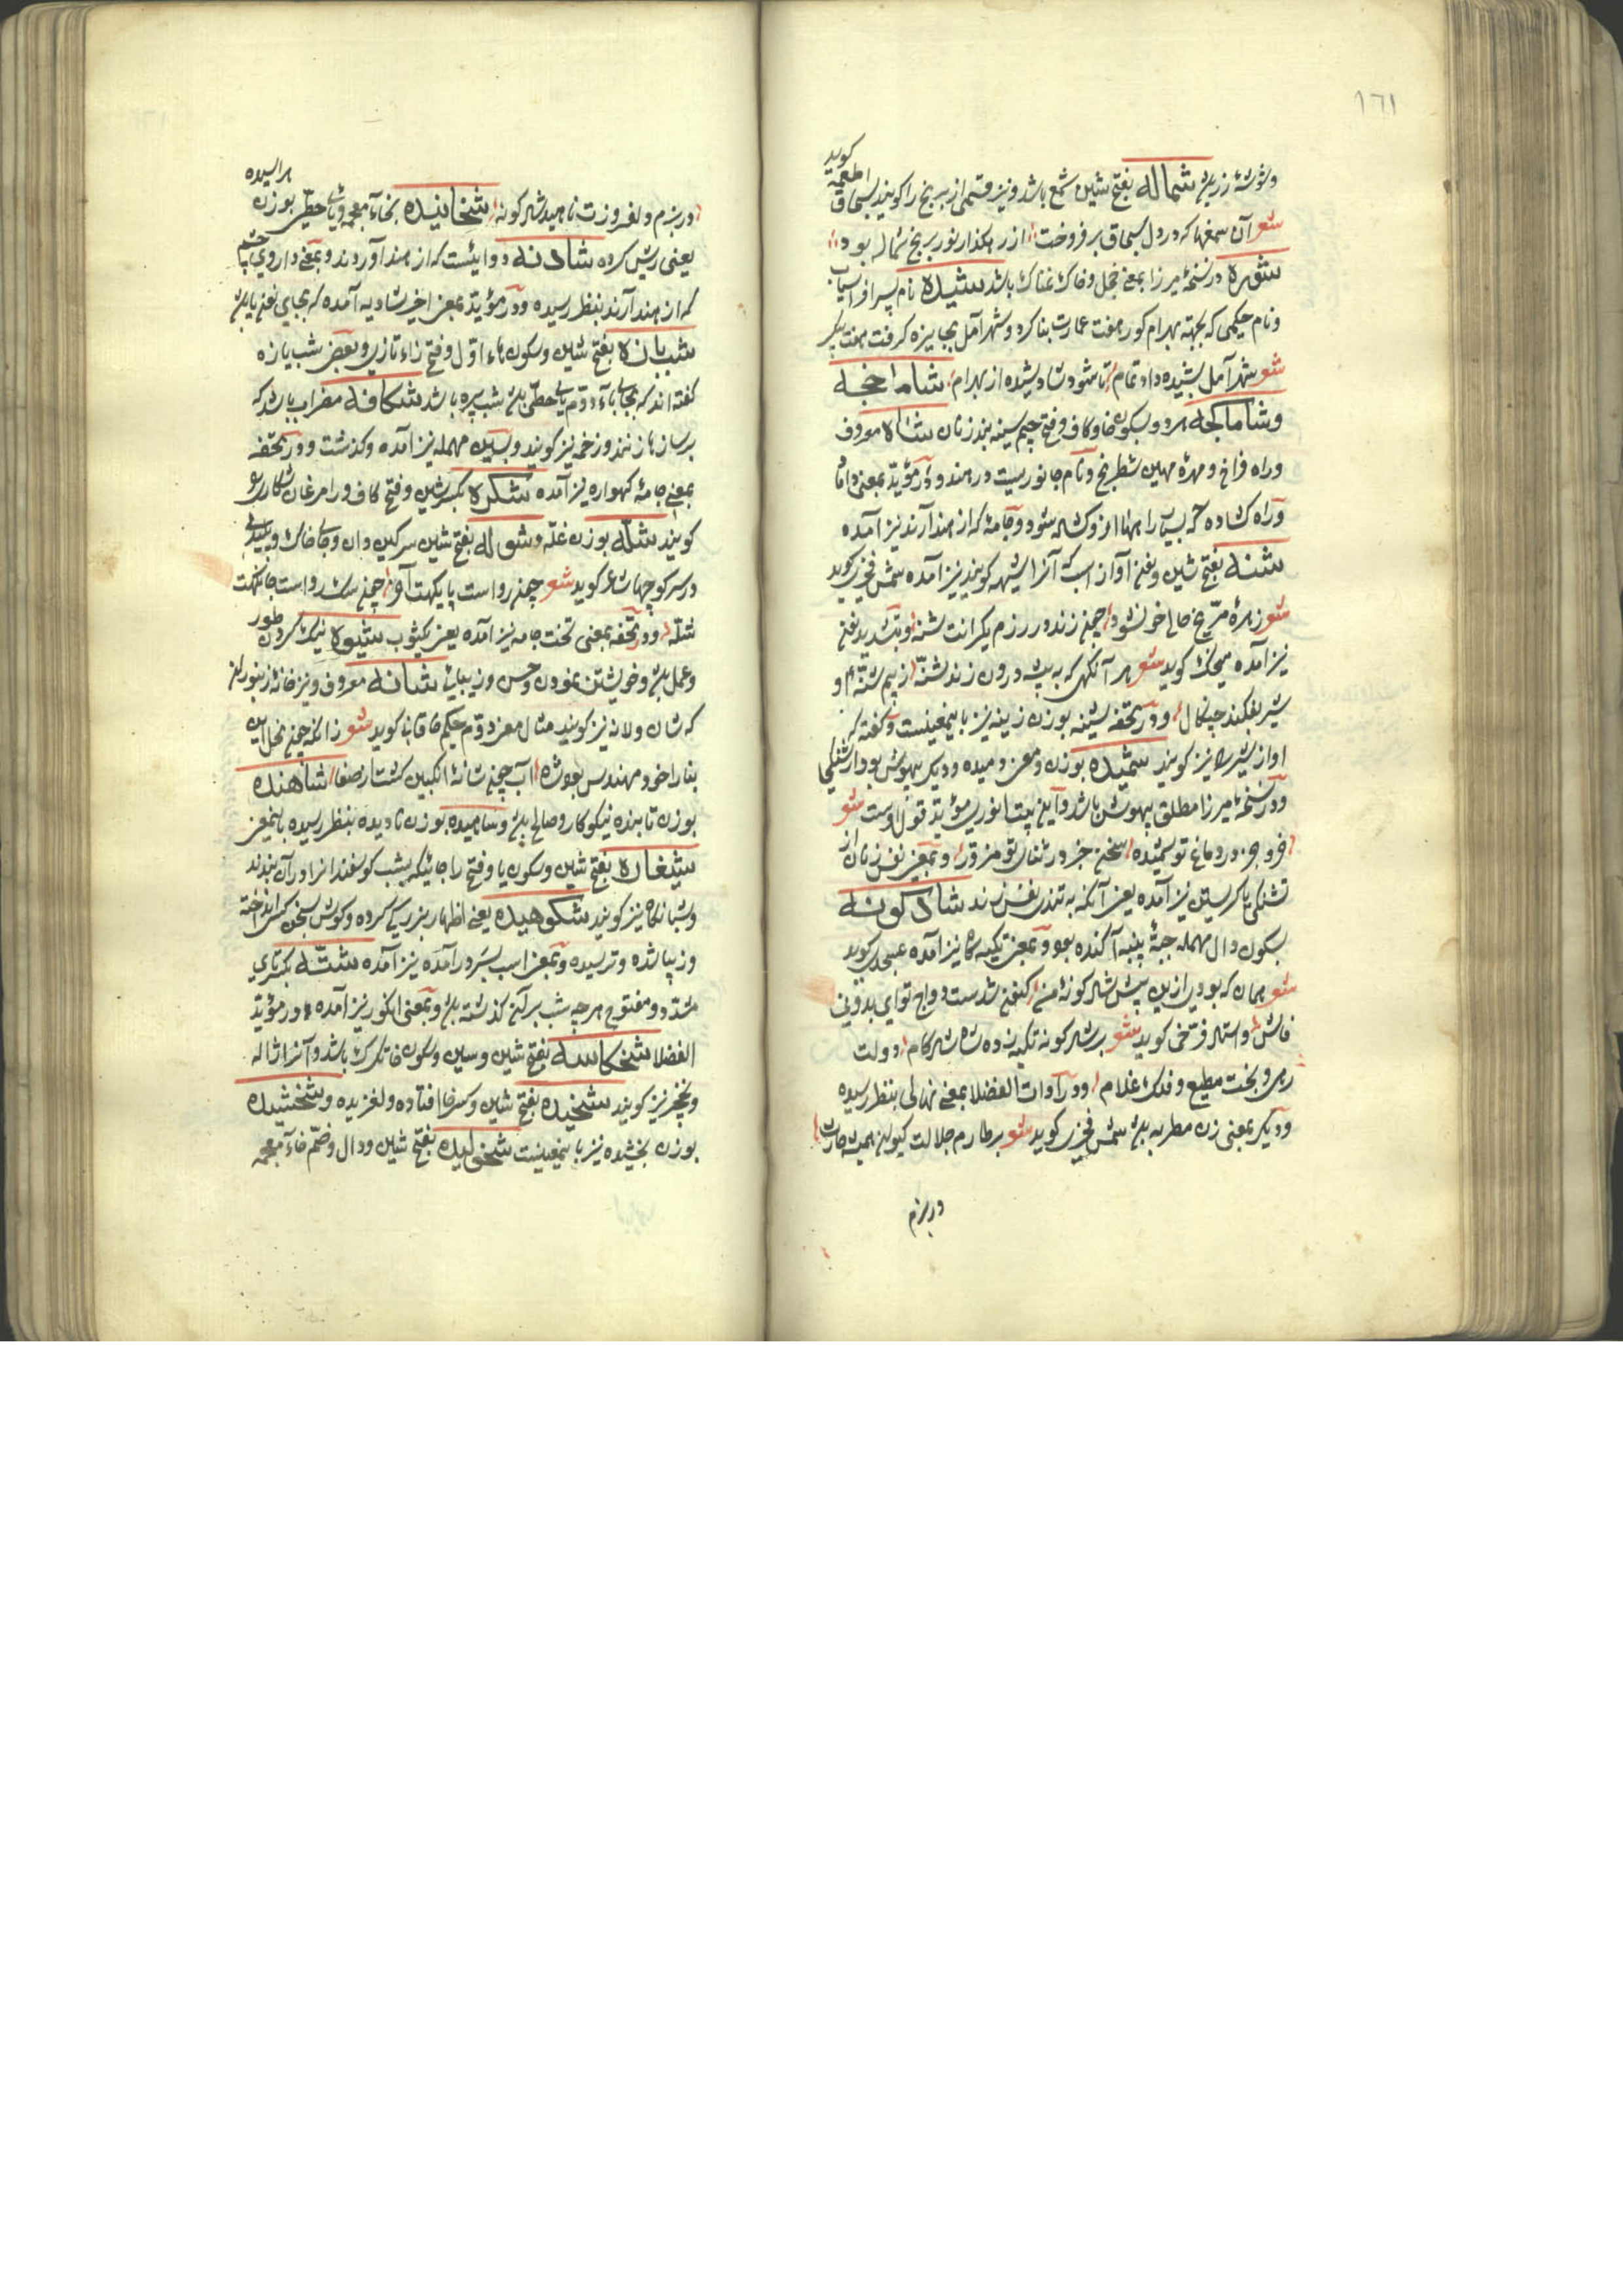 ١٦١
گوید
وشوشهٔ زر باشد شماله بفتح شین شمع باشد و نیز قسمی از برنج را گویند بسحاق اطعمه
شعر آن شمعها که در دل بسحاق برفروخت از رهگذار نور برنج شماله بود
شوره در نسخهٔ میرزا بمعنی خجل و خاک نمناک باشد شیده نام پسر افراسیاب
ونام حکیمی که بجهته بهرام کور هفت عمارت بنا کرد و شهر آمل بجایزه کرفت هفت پیکر
شعر شهر آمل بشیده داد تمام تا شود شاد شیده از بهرام شاماخجه
وشاماکجه هردو بسکون خا و کاف و فتح جیم سینه بند زنان شاه معروف
وراه فراخ و مهرهٔ مهین شطرنج ونام جانوریست در هند و در مؤید بمعنی داماد
وراه کشاده که بسیار راهها ازو کشاله شود و جامه که از هند آرند نیز آمده
شنه بفتح شین ونون آواز اسب که آنرا شیهه کویند نیز آمده شمس فخری کوید
شعر زهرهٔ مریخ حالی خون شود چون زند در رزم یکرانت شنه و بتشدید نون
نیز آمده کوید شعر هر آنکهی که به بیشه درون زند شنه از بیم شنه او
شیر بفکند چنکال ودر تحفه شینه بوزن زینه نیز باینمعنیست وکفته که
اواز شیر را نیز کویند شمیده بوزن ومعنی رمیده ودیکر بیهوش بود از تشنکی
ودر نسخهٔ میرزا مطلق بیهوش باشد واین بیت انوری مؤید قول اوست شعر
در دماغ تو شمیده سخن جز در ثنای تو مزور وبمعنی نفس زنان از
تشنکی یا کریستن نیز آمده یعنی آنکه به تندی نفس زند شادکونه
بسکون دال مهمله جبهٔ پنبه آکنده بود وبمعنی تکیه کاه نیز آمده عسجدی کوید
شعر همان که بودی ازین پیش شادکونهٔ من کنون شدست دواج تو ای بدو
فاش واستاد فرخی کوید شعر بر شادکونه تکیه زده شاه شادکام دولت
رهی و بخت مطیع و فلک غلام ودر ادات الفضلا بمعنی نهالی بنظر رسیده
ودیکر بمعنی زن مطربه باشد شمس فخری کوید شعر بر طارم جلالت کیوان همیشه حارس
در بزم
هراسیده
در بزم دلفروزت ناهید شادکونه شخانیده بخاء معجمه ویاء حطی بوزن
یعنی ریش کرده شادنه دوایئست که از هند آوردند وبمعنی داروی چشم
که از هند آرند بنظر رسیده ودر مؤید بمعنی اخیر شادیه آمده که بجای نون یا باشد
شبیازه بفتح شین وسکون باء اول وفتح زاء تازی وبعضی شب یازه
کفته اند که بجای باء دوم یای حطی باشد شب پره باشد شکافه مضراب باشد که
بر ساز زنند وزخمه نیز کویند وبسین مهمله نیز آمده وکذشت ودر تحفه
بمعنی جامهٔ کهواره نیز آمده شکره بکسر شین وفتح کاف ورا مرغان شکاری
کویند شلّه بوزن غلّه وشوله بفتح شین سرکین دان وجای خاک وپلیدی
در سر کوچها شاعر کوید شعر چون رواست چون سک رواست
شلّه ودر تحفه بمعنی تخت جامه نیز آمده یعنی یکثوب شیوه نیک کردن طور
وعمل باشد وخویشتن نمودن وحسن وزیبائی شانه معروف ونیز خانهٔ زنبور
که شان ولانه نیز کویند مثال معنی دوم حکیم خاقانی کوید شعر زانکه چون نحل این
بنا را خود مهندس بود شاه چون شانهٔ انکبین کشت از صفا شاهنده
بوزن تابنده نیکوکار وصالح باشد وشاهیده بوزن نادیده بنظر رسیده باینمعنی
شیغاره بفتح شین وسکون یا وفتح را جائیکه بشب کوسفندانرا در آن بندند
وشبانکاه نیز کویند شکوهیده یعنی اظهار بزرکی کرده وکوش بسخن کس انداخته
وزیبا شده وترسیده وبمعنی اسب بسر درآمده نیز آمده شتّه بکسر تای
مشدد ومفتوح هر چه شب بر آن کذشته باشد وبمعنی انکور نیز آمده در مؤید
الفضلا شخکاسه بفتح شین وسین وسکون خا تکرک باشد وآنرا ژاله
ویخچه نیز کویند شخیده بفتح شین وکسر خا افتاده ولغزیده وشخشیده
بوزن بخشیده نیز باینمعنیست شخولیده بفتح شین ودال وضم خاء معجمه